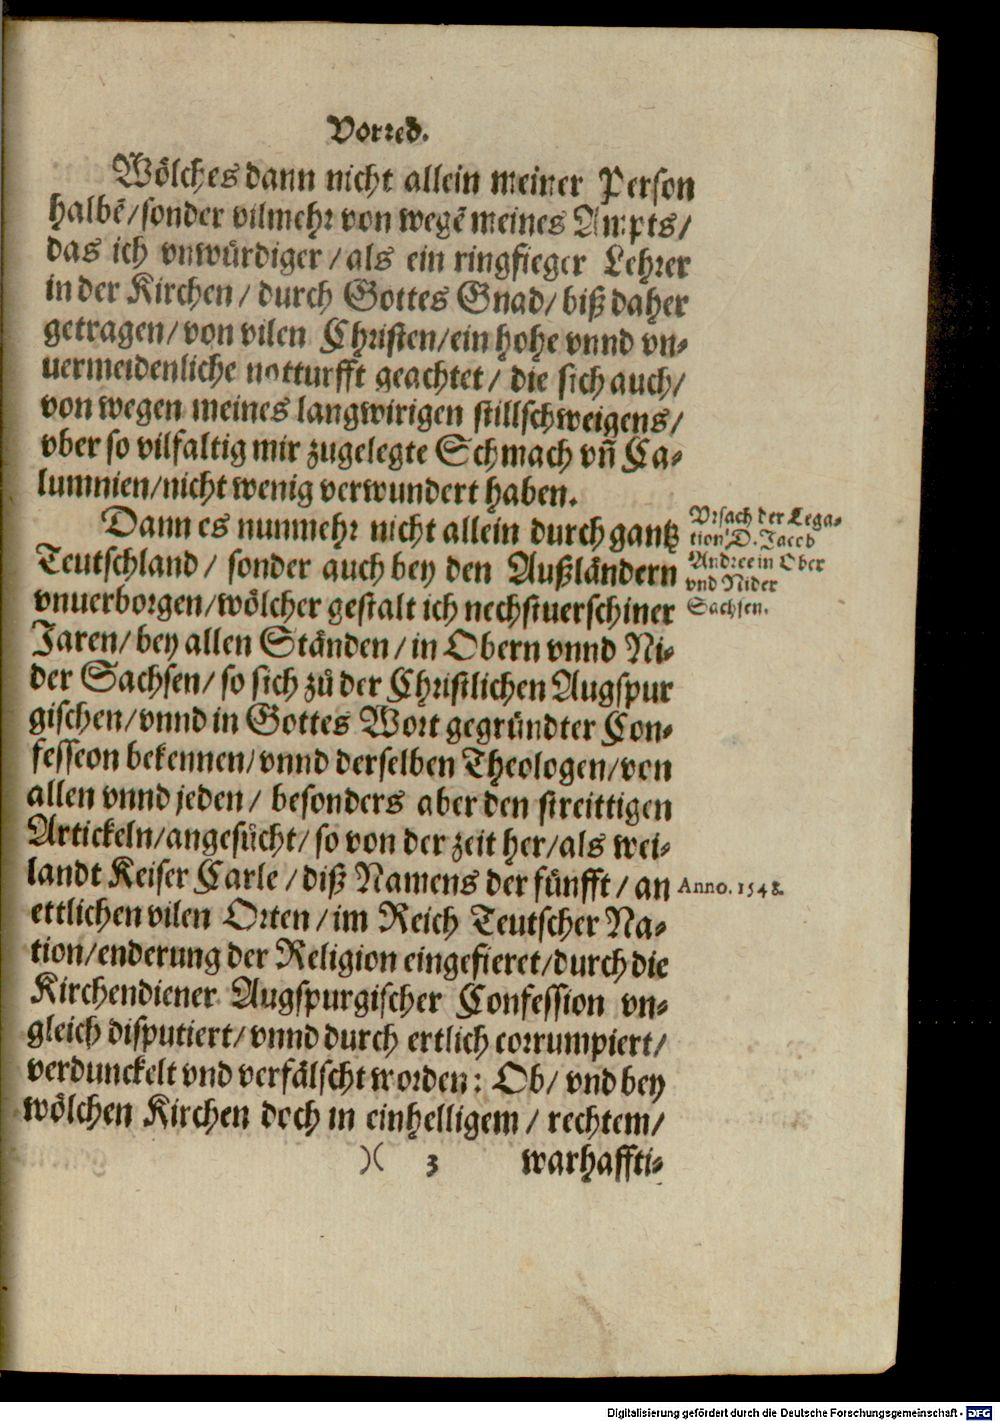 Vorred.
Wölches dann nicht allein meiner Person
halbẽ/sonder vilmehr von wegẽ meines Ampts/
das ich vnwürdiger/als ein ringfieger Lehrer
in der Kirchen/durch Gottes Gnad/biß daher
getragen/von vilen Christen/ein hohe vnnd vn-
uermeidenliche notturfft geachtet/die sich auch/
von wegen meines langwirigen stillschweigens/
vber so vilfaltig mir zugelegte Schmach vñ Ca-
lumnien/nicht wenig verwundert haben.
Dann es nunmehr nicht allein durch gantz
Teutschland/sonder auch bey den Außländern
vnuerborgen/wölcher gestalt ich nechstuerschiner
Jaren/bey allen Ständen/in Obern vnnd Ni-
der Sachsen/so sich zů der Christlichen Augspur
gischen/vnnd in Gottes Wort gegründter Con-
fesseon bekennen/vnnd derselben Theologen/von
allen vnnd jeden/besonders aber den streittigen
Artickeln/angesůcht/so von der zeit her/als wei-
landt Keiser Carle/diß Namens der fünfft/an
ettlichen vilen Orten/im Reich Teutscher Na-
tion/enderung der Religion eingefieret/durch die
Kirchendiener Augspurgischer Confession vn-
gleich disputiert/vnnd durch ertlich corrumpiert/
verdunckelt vnd verfälscht worden: Ob/vnd bey
wölchen Kirchen doch in einhelligem/rechtem/
)( 3 warhaffti-
Vrsach der Lega-
tion D. Jacob
Andree in Ober
vnd Nider
Sachsen.
Anno. 1548.
Digitalisierung gefördert durch die Deutsche Forschungsgemeinschaft - DFG